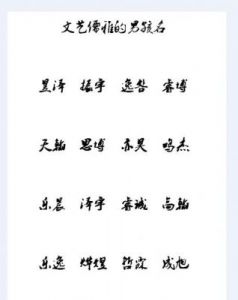 文艺儒雅的男孩名
昱泽 振宇 逸磐 睿博
天翰 思博 亦昊 鸣杰
乐晨 泽宇 睿诚 高翰
乐逸 烨煜 哲霖 成旭